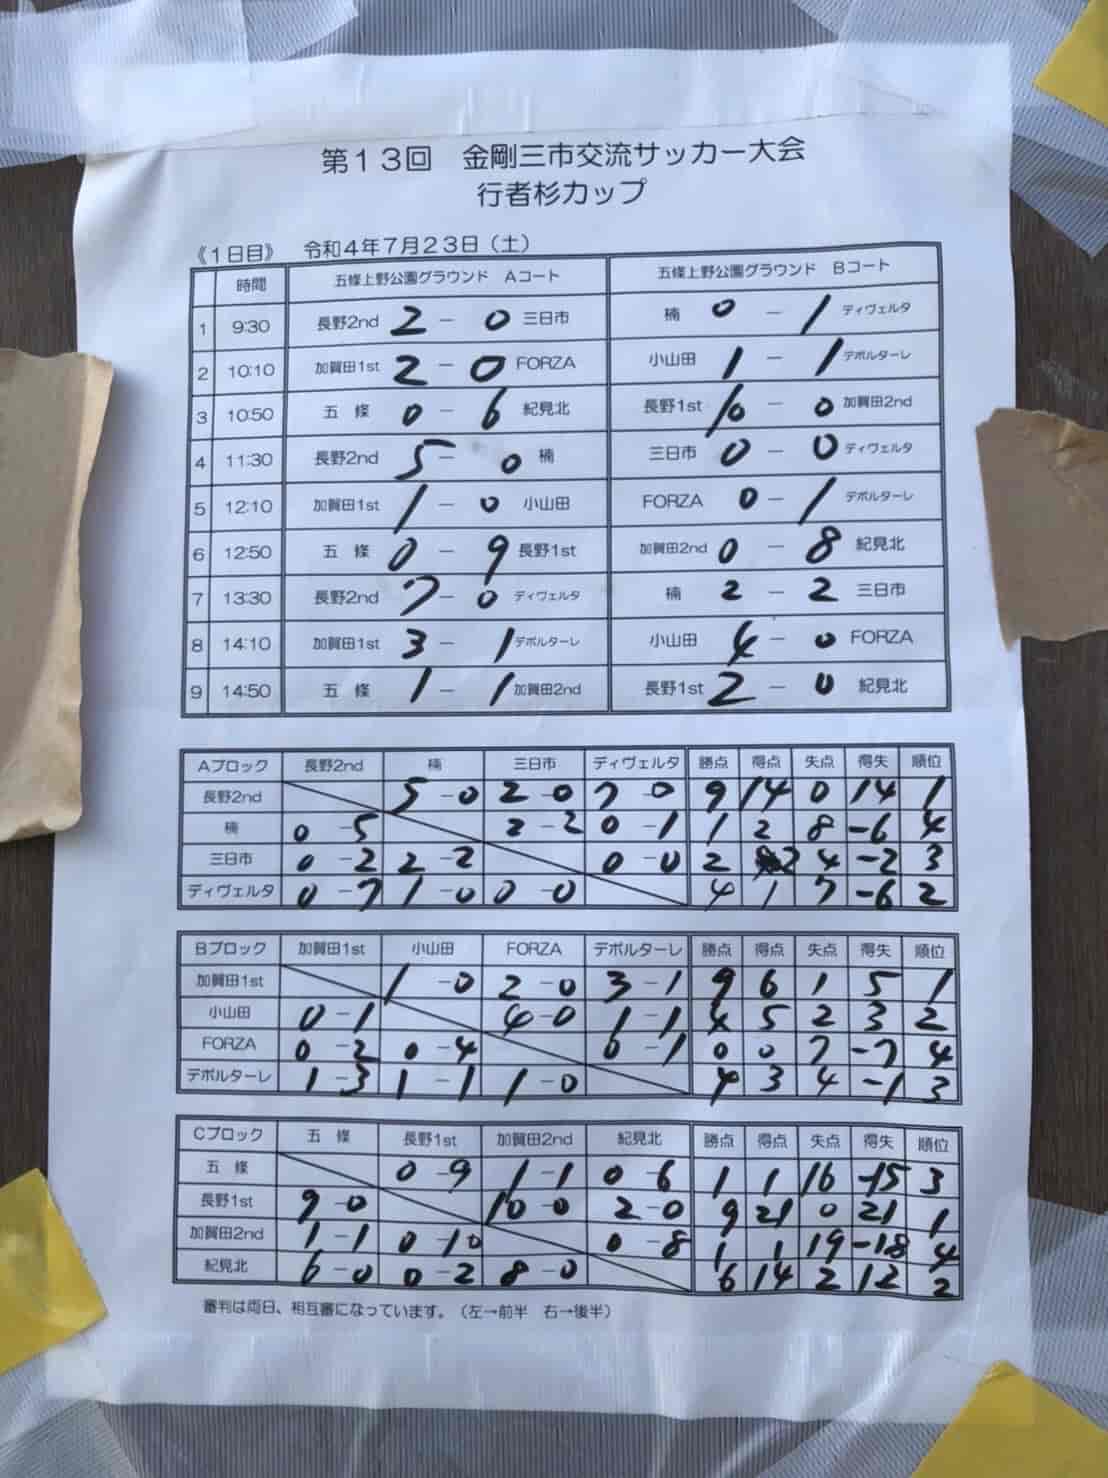 第13回　金剛三市交流サッカー大会
行者杉カップ
《1日目》　令和4年7月23日（土）
時間　五條上野公園グラウンド　Aコート　五條上野公園グラウンド　Bコート
1　9:30　長野2nd　2 － 0　三日市　楠　0 － 1　ディヴェルタ
2　10:10　加賀田1st　2 － 0　FORZA　小山田　1 － 1　デポルターレ
3　10:50　五　條　0 － 6　紀見北　長野1st　10 － 0　加賀田2nd
4　11:30　長野2nd　5 － 0　楠　三日市　0 － 0　ディヴェルタ
5　12:10　加賀田1st　1 － 0　小山田　FORZA　0 － 1　デポルターレ
6　12:50　五　條　0 － 9　長野1st　加賀田2nd　0 － 8　紀見北
7　13:30　長野2nd　7 － 0　ディヴェルタ　楠　2 － 2　三日市
8　14:10　加賀田1st　3 － 1　デポルターレ　小山田　4 － 0　FORZA
9　14:50　五　條　1 － 1　加賀田2nd　長野1st　2 － 0　紀見北
Aブロック　長野2nd　楠　三日市　ディヴェルタ　勝点　得点　失点　得失　順位
長野2nd　5 － 0　2 － 0　7 － 0　9　14　0　14　1
楠　0 － 5　2 － 2　0 － 1　1　2　8　-6　4
三日市　0 － 2　2 － 2　0 － 0　2　2　4　-2　3
ディヴェルタ　0 － 7　1 － 0　0 － 0　4　1　7　-6　2
Bブロック　加賀田1st　小山田　FORZA　デポルターレ　勝点　得点　失点　得失　順位
加賀田1st　1 － 0　2 － 0　3 － 1　9　6　1　5　1
小山田　0 － 1　4 － 0　1 － 1　4　5　2　3　2
FORZA　0 － 2　0 － 4　0 － 1　0　0　7　-7　4
デポルターレ　1 － 3　1 － 1　1 － 0　4　3　4　-1　3
Cブロック　五　條　長野1st　加賀田2nd　紀見北　勝点　得点　失点　得失　順位
五　條　0 － 9　1 － 1　0 － 6　1　1　16　-15　3
長野1st　9 － 0　10 － 0　2 － 0　9　21　0　21　1
加賀田2nd　1 － 1　0 － 10　0 － 8　1　1　19　-18　4
紀見北　6 － 0　0 － 2　8 － 0　6　14　2　12　2
審判は両日、相互審になっています。（左→前半　右→後半）